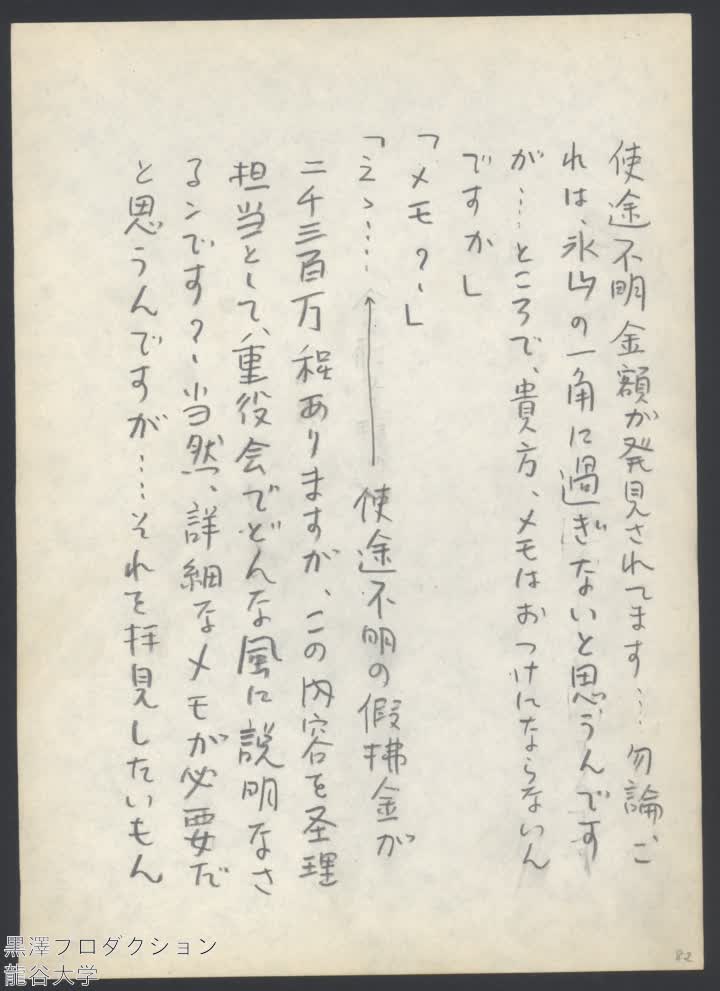 使途不明金額が発見されてます……勿論、こ
れは、氷山の一角に過ぎないと思うんです
が……ところで、貴方、メモはおつけにならないん
ですか」
「メモ？ー」
「えゝ……　使途不明の假拂金が
二千三百万程ありますが、この内容を圣理
担当として、重役会でどんな風に説明なさ
るンです？ー当然、詳細なメモが必要だ
と思うんですが……それを拝見したいもん
82
黒澤プロダクション
龍谷大学